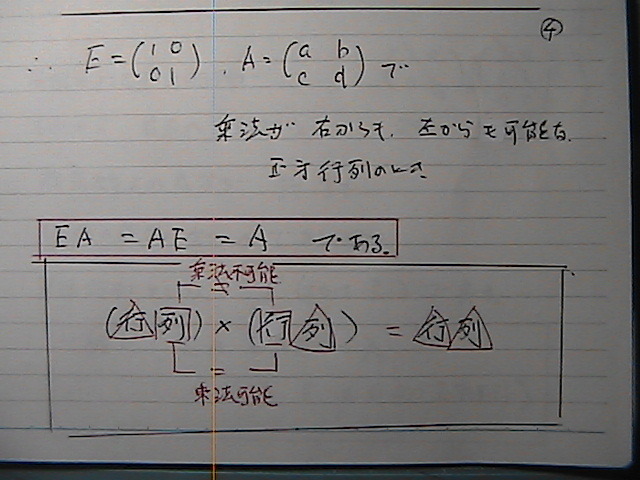 ④
∴ E = (1 0 0 1), A = (a b c d) で
乗法が 右からも, 左からも可能な
正方行列のとき
EA = AE = A である。
乗法不可能
≠
(行列) × (行列) = 行列
=
乗法可能